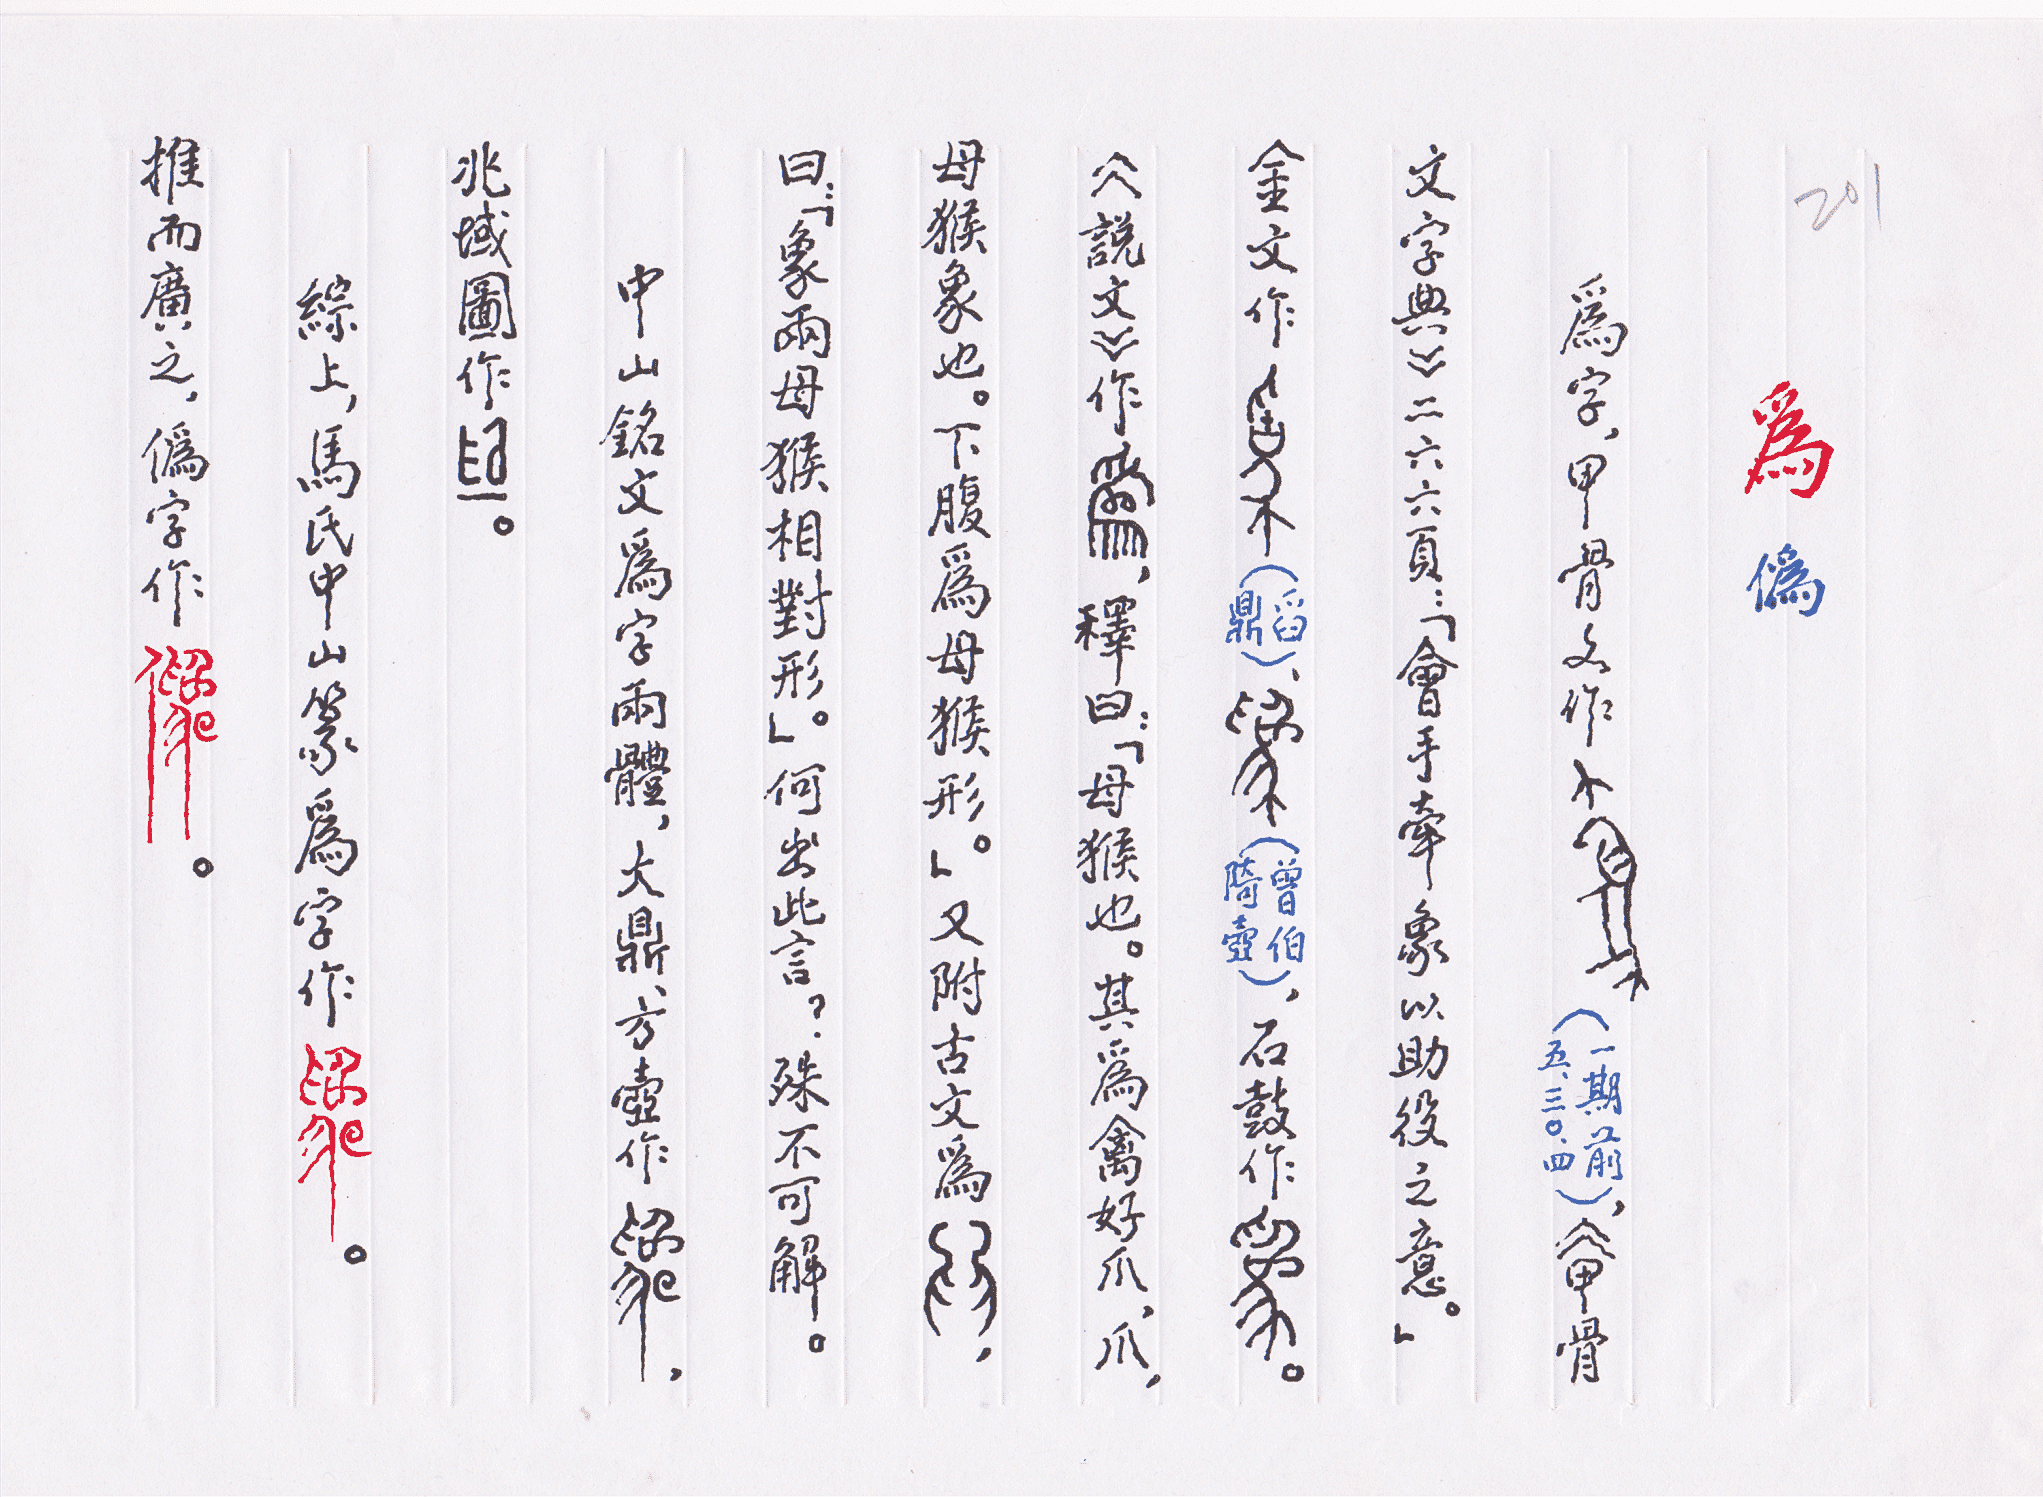 201
爲 僞
爲字，甲骨文作（一期前五、三〇、四），《甲骨
文字典》二六六頁：「會手牽象以助役之意。」
金文作（舀鼎）、（曾伯陭壺），石鼓作。
《說文》作，釋曰：「母猴也。其爲禽好爪，爪，
母猴象也。下腹爲母猴形。」又附古文爲，
曰：「象兩母猴相對形。」何出此言？殊不可解。
中山銘文爲字兩體，大鼎、方壺作，
兆域圖作。
綜上，馬氏中山篆爲字作。
推而廣之，僞字作。